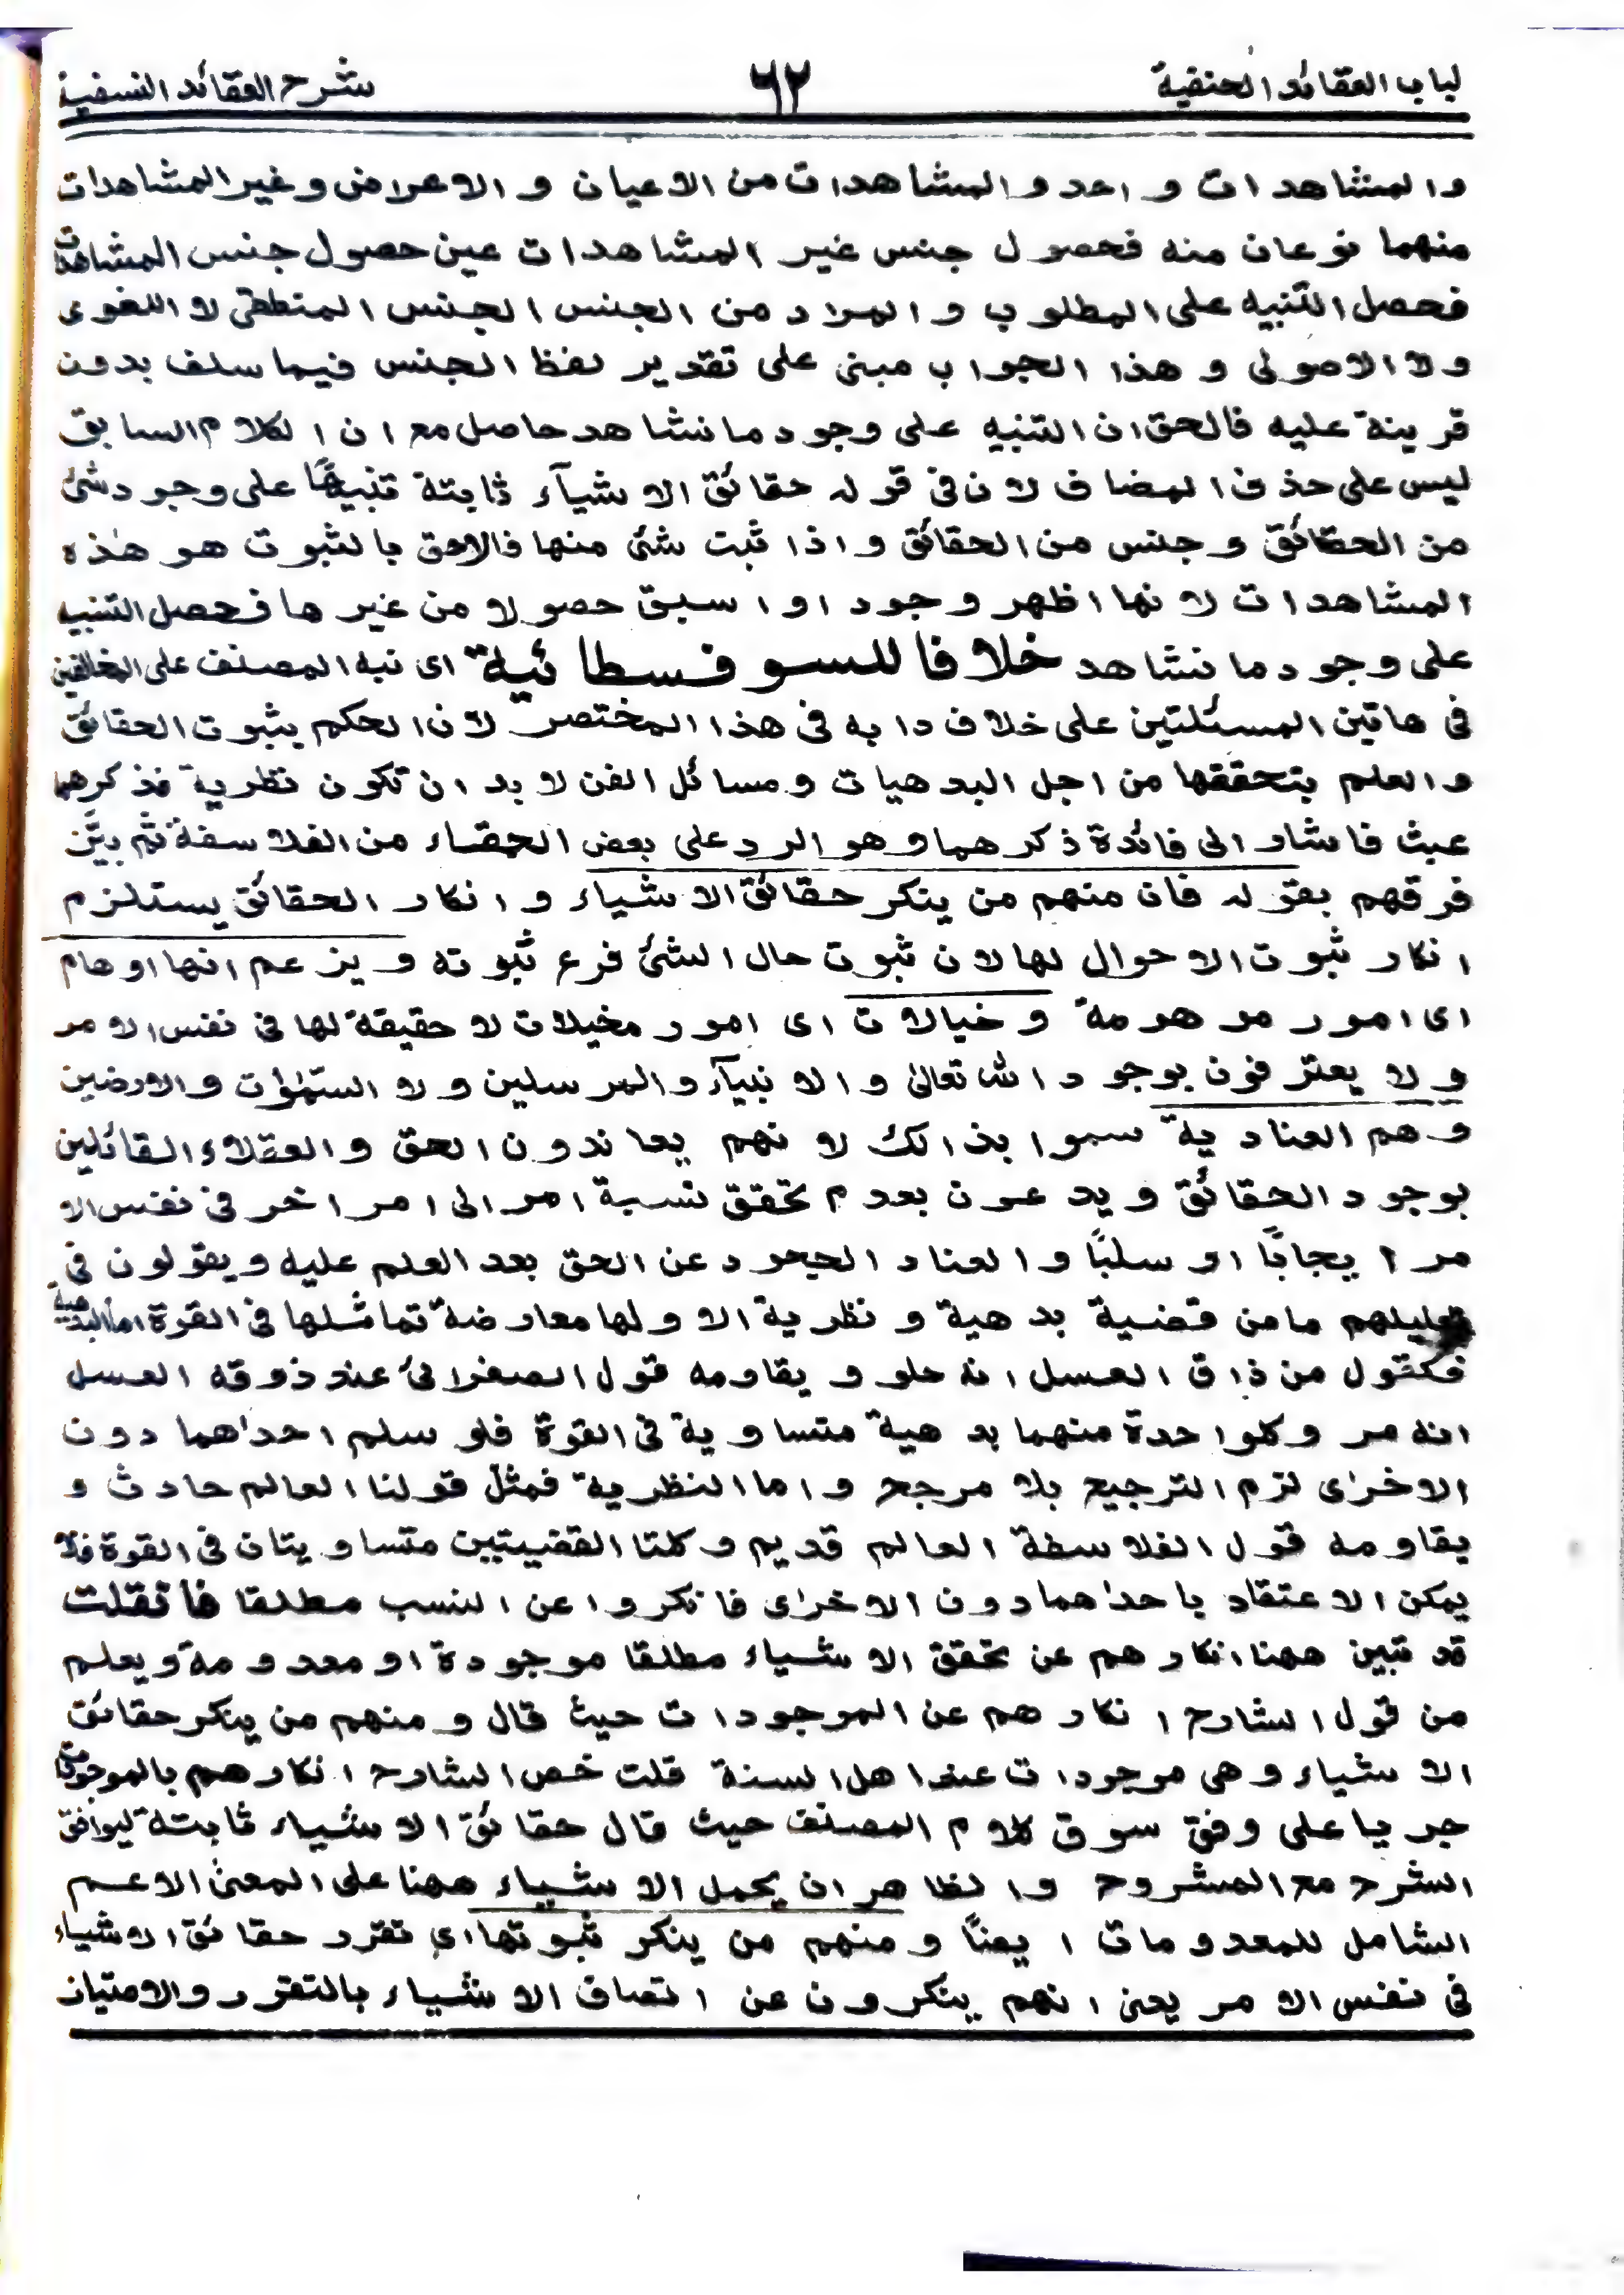 لباب العقائد الحنفية ٦٢ شرح العقائد النسفية
والمشاهدات واحد والمشاهدات من الاعيان والاعراض وغير المشاهدات
منهما نوعان منه فحصول جنس غير المشاهدات عين حصول جنس المشاهدات
فحصل التنبيه على المطلوب والمراد من الجنس الجنس المنطقى لا اللغوى
ولا الاصولى وهذا الجواب مبنى على تقدير لفظ الجنس فيما سلف بدون
قرينة عليه فالحق ان التنبيه على وجود ما نشاهد حاصل مع ان الكلام السابق
ليس على حذف المضاف لان فى قوله حقائق الاشيآء ثابتة تنبيهًا على وجود شئ
من الحقائق وجنس من الحقائق واذا ثبت شئ منها فالاحق بالثبوت هو هذه
المشاهدات لانها اظهر وجودا واسبق حصولا من غيرها فحصل التنبيه
على وجود ما نشاهد خلافا للسوفسطائية اى نبه المصنف على المخالفين
فى هاتين المسئلتين على خلاف دابه فى هذا المختصر لان الحكم بثبوت الحقائق
والعلم بتحققها من اجل البدهيات ومسائل الفن لابد ان تكون نظرية فذكرهما
عبث فاشار الى فائدة ذكرهما وهو الرد على بعض الحمقاء من الفلاسفة ثم بيَّن
فرقهم بقوله فان منهم من ينكر حقائق الاشياء وانكار الحقائق يستلزم
انكار ثبوت الاحوال لها لان ثبوت حال الشئ فرع ثبوته ويزعم انها اوهام
اى امور موهومة وخيالات اى امور مخيلات لا حقيقة لها فى نفس الامر
ولا يعترفون بوجود الله تعالى والانبيآء والمرسلين ولا السمٰوٰت والارضين
وهم العنادية سموا بذالك لانهم يعاندون الحق والعقلاء القائلين
بوجود الحقائق ويدعون بعدم تحقق نسبة امر الى امر اخر فى نفس الا
مر ايجابًا او سلبًا والعناد الجحود عن الحق بعد العلم عليه ويقولون فى
تعليلهم ما من قضية بدهية ونظرية الا ولها معارضة تماثلها فى القوة اما البدهية
فكقول من ذاق العسل انه حلو ويقاومه قول الصفرائى عند ذوقه العسل
انه مر وكلواحدة منهما بدهية متساوية فى القوة فلو سلم احداهما دون
الاخرٰى لزم الترجيح بلا مرجح واما النظرية فمثل قولنا العالم حادث و
يقاومه قول الفلاسفة العالم قديم وكلتا القضيتين متساويتان فى القوة فلا
يمكن الاعتقاد باحداهما دون الاخرٰى فانكروا عن النسب مطلقا فانقلت
قد تبين ههنا انكارهم عن تحقق الاشياء مطلقا موجودة او معدومة ويعلم
من قول الشارح انكارهم عن الموجودات حيث قال ومنهم من ينكر حقائق
الاشياء وهى موجودات عند اهل السنة قلت خص الشارح انكارهم بالموجودات
جريا على وفق سوق كلام المصنف حيث قال حقائق الاشياء ثابتة ليوافق
الشرح مع المشروح والظاهر ان يحمل الاشياء ههنا على المعنى الاعم
الشامل للمعدومات ايضًا ومنهم من ينكر ثبوتها اى تقرر حقائق الاشياء
فى نفس الامر يعنى انهم ينكرون عن اتصاف الاشياء بالتقرر والامتياز